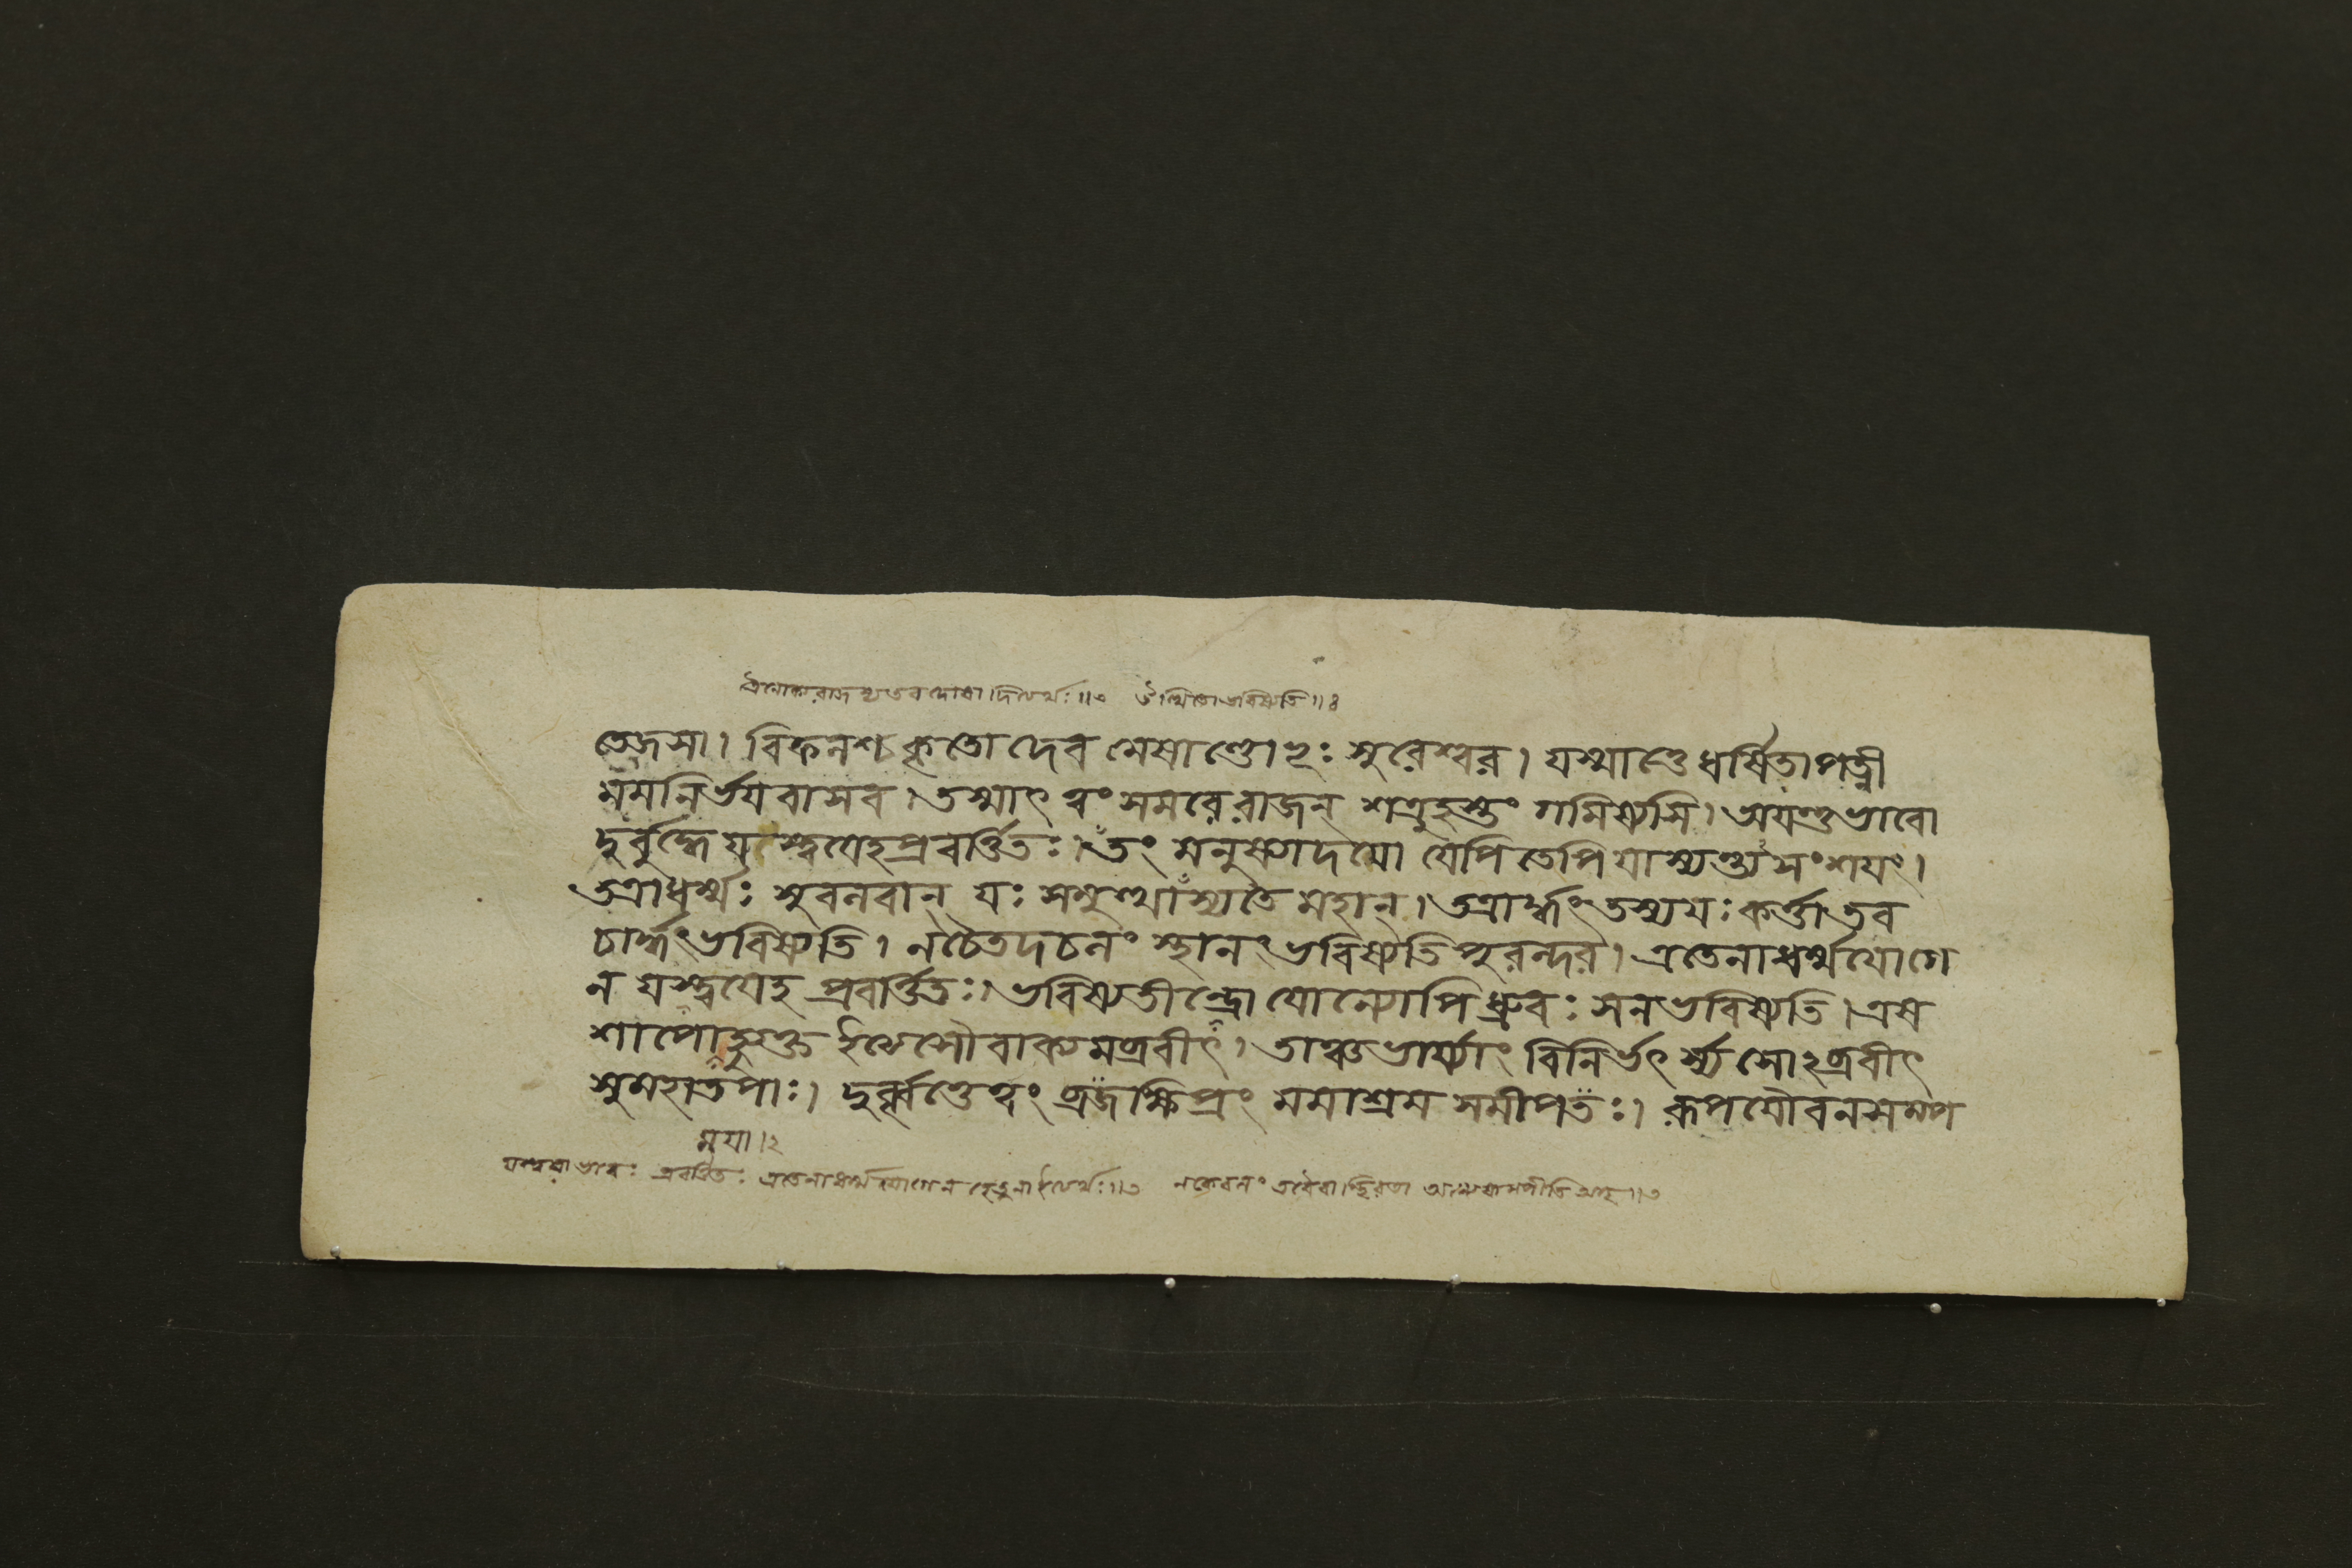 তেজসা। বিফনশ্চ কৃতো দেব মেষাণ্ডোঽঃ সুরেশ্বর। যস্মাত্তে ধর্ষিতা পত্নী
মমনির্ভয বাসব। তস্মাৎ ত্বং সমরে রাজন্ শত্রুহস্তং গমিষ্যসি। অযন্তু ভাবো
দুর্বুদ্ধে যস্ত্বযেহ প্রবর্ত্তিতঃ। তং মনুষ্যা যেপি তেপি যাস্যন্ত্যসংশযং।
তত্রাধর্ম্মঃ সুবনবান্ যঃ সমুত্থাস্যতে মহান্। তত্রার্দ্ধং তস্য যঃ কর্ত্তা তব
চার্দ্ধং ভবিষ্যতি। ন চৈতদচনং স্থানং ভবিষ্যতি পুরন্দর। এতেনাধর্ম্মযোগে
ন যস্ত্বযেহ প্রবর্ত্তিতঃ। ভবিষ্যতীন্দ্রো যোন্যোপি ধ্রুবঃ স ন ভবিষ্যতি। এষ
শাপো মুক্ত ইত্যেসৌ বাক্যমব্রবীৎ। তাঞ্চ ভার্য্যাং বিনির্ভৎর্স্য সোঽব্রবীৎ
সুমহাতপাঃ। দুর্ব্বৃত্তে ত্বং ব্রজ ক্ষিপ্রং মমাশ্রম সমীপতঃ। রূপযৌবনসম্প
ময়া।২
প্রবর্ত্তিতঃ এতেনাধর্ম্মযোগেন হেতুনা ইত্যর্থঃ॥৩